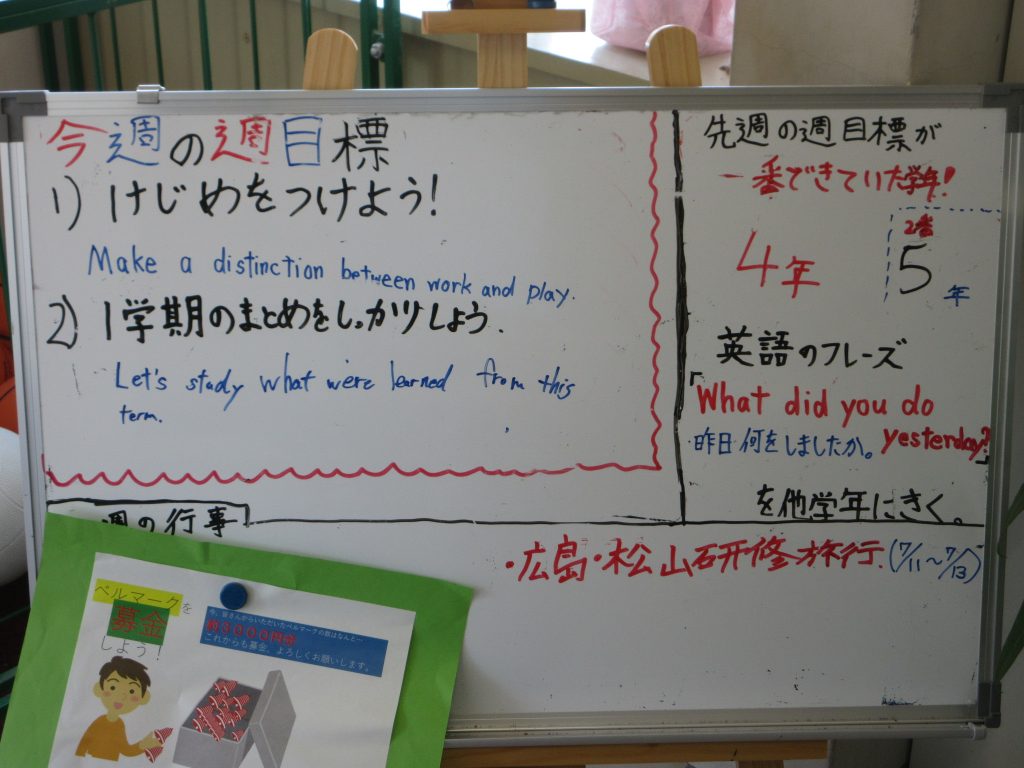 今週の週目標
1) けじめをつけよう!
Make a distinction between work and play.
2) 1学期のまとめをしっかりしよう.
Let's study what we're learned from this
term.
先週の週目標が
一番できていた学年!
4年
2番
5年
英語のフレーズ
「What did you do
yesterday?」
昨日何をしましたか。
を他学年にきく。
週の行事
・広島・松山研修旅行.(7/11~7/13)
ベルマークを
募金
しよう!
今、皆さんからいただいたベルマークの数はなんと…
約3000円分
これからも募金、よろしくお願いします。